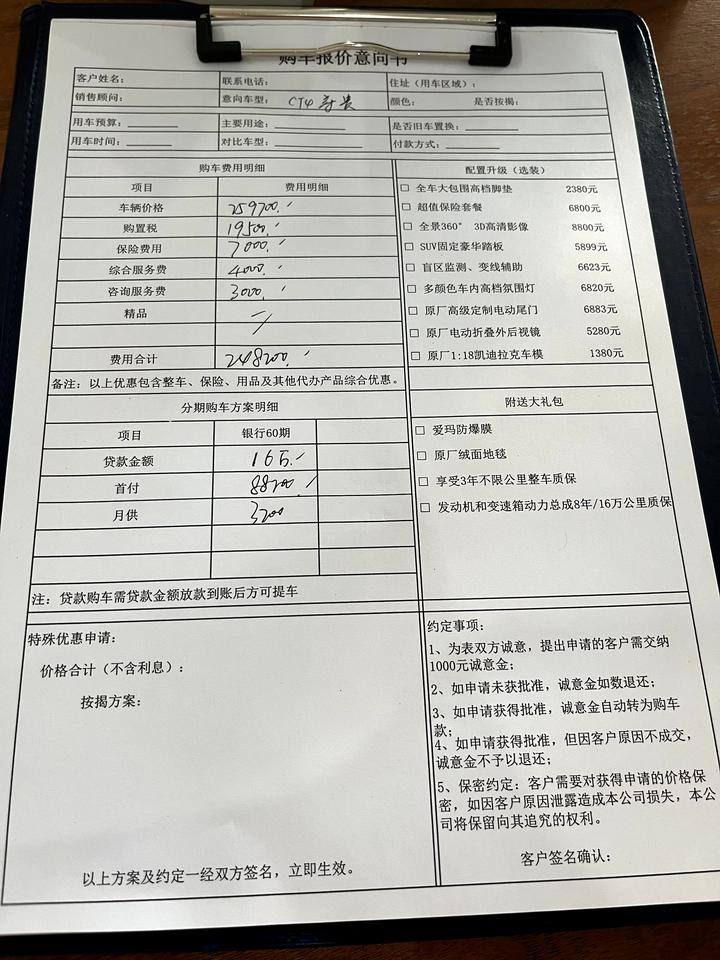 购车报价意向书
客户姓名： 联系电话： 住址（用车区域）：
销售顾问： 意向车型： CT4 颜色： 是否按揭：
用车预算： 主要用途： 是否旧车置换：
用车时间： 对比车型： 付款方式：
购车费用明细
项目 费用明细
车辆价格
购置税 19500.
保险费用 7000.
综合服务费 4000.
咨询服务费 3000.
精品
费用合计 248200.
备注：以上优惠包含整车、保险、用品及其他代办产品综合优惠。
配置升级（选装）
全车大包围高档脚垫 2380元
超值保险套餐 6800元
全景360° 3D高清影像 8800元
SUV固定豪华踏板 5899元
盲区监测、变线辅助 6623元
多颜色车内高档氛围灯 6820元
原厂高级定制电动尾门 6883元
原厂电动折叠外后视镜 5280元
原厂1:18凯迪拉克车模 1380元
分期购车方案明细
项目 银行60期
贷款金额 165.
首付 88200.
月供 3200
注：贷款购车需贷款金额放款到账后方可提车
附送大礼包
爱玛防爆膜
原厂绒面地毯
享受3年不限公里整车质保
发动机和变速箱动力总成8年/16万公里质保
特殊优惠申请：
价格合计（不含利息）：
按揭方案：
以上方案及约定一经双方签名，立即生效。
约定事项：
1、为表双方诚意，提出申请的客户需交纳
1000元诚意金；
2、如申请未获批准，诚意金如数退还；
3、如申请获得批准，诚意金自动转为购车
款；
4、如申请获得批准，但因客户原因不成交，
诚意金不予以退还；
5、保密约定：客户需要对获得申请的价格保
密，如因客户原因泄露造成本公司损失，本公
司将保留向其追究的权利。
客户签名确认：